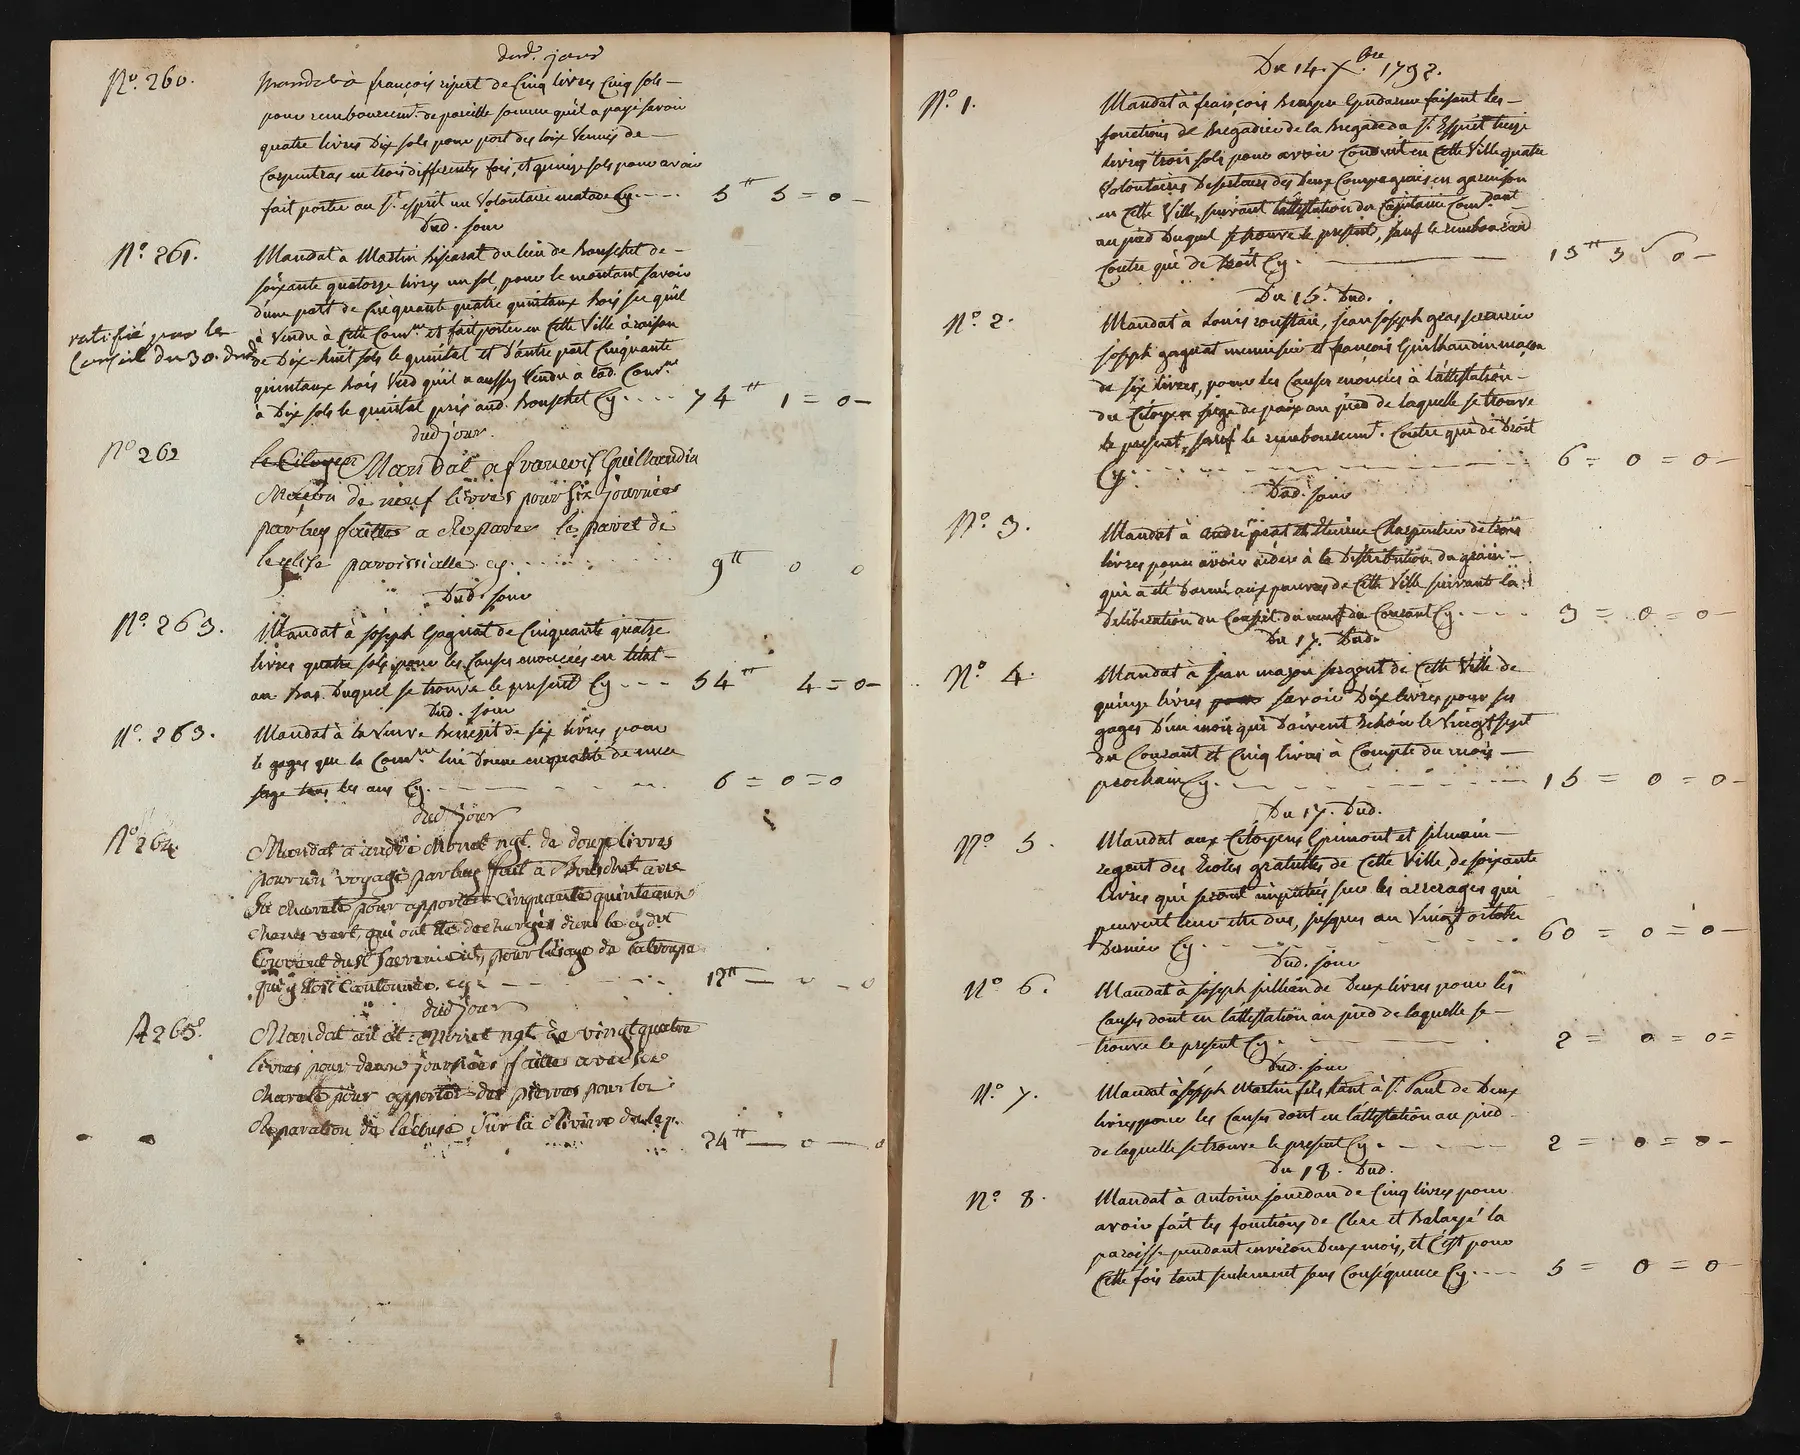 dud. jour
N.º 260.
Mandat à françois ripert de Cinq livres Cinq sols —
pour remboursem.t de pareille somme qu'il a payé savoir
quatre livres Dix sols pour port des loix Venues de —
Carpentras en trois differentes fois, et quinze sols pour avoir
fait porter au S.t esprit un Volontaire malade Cy. - - - 5 ₶ 5 = 0 —
Dud. jour
N.º 261.
Mandat à Martin du lieu de bouschet de —
soixante quatorze livres un sol, pour le montant savoir
d'une part de Cinquante quatre quintaux bois sec qu'il
à Vendu à Cette Com.ne et fait porter en Cette Ville à raison
de Dix-huit sols le quintal et d'autre part Cinquante
quintaux bois Verd qu'il a aussy Vendu a lad. Com.ne
à Dix sols le quintal pris aud. bouschet Cy - - - - 74 ₶ 1 = 0 —
ratifié par le
Conseil du 30. dud.
dud jour.
Nº 262
le Citoyen Mandat a francois Guilhaudin
Maçon de neuf livres pour six journées
par luy faittes a Reparer le pavet de
leglise paroissialle. cy. 9 ₶ 0 0
Dud. jour
N.º 263.
Mandat à joseph Gagnat de Cinquante quatre
livres quatre sols pour les Causes enoncées en l'etat —
au bas Duquel se trouve le present Cy - - - 54 ₶ 4 = 0 —
Dud. jour
N.º 263.
Mandat à la Veuve benezit de six livres pour
le gages que la Com.ne lui Donne en qualité de
sage tous les ans Cy. 6 = 0 = 0
dud jour
Nº 264.
Mandat a andré Monet ngt. de douze livres
pour un voyage par luy fait a Bouschet avec
Sa charete pour apporter cinquante quinteaux
chenes vert, qui ont été dechargés dans le cydt
Couvent du St Sacrement, pour l'usage de la troupe
qui y étoit Cantonnée. cy - 12 ₶ — 0 — 0
dud jour
265.
Mandat au dt. Monet ngt. de vingt quatre
livres pour deux journées faites avec sa
charete pour apporter des pierres pour la
Reparation de l'ecluse sur la Riviere du lez. 24 ₶ — 0 — 0
Du 14. X.bre 1792.
N.º 1.
Mandat à françois Gendarme faisant les —
fonctions de brigadier de la brigade du S.t Esprit treize
livres trois sols pour avoir Conduit en Cette Ville quatre
Volontaires Deserteurs des deux Compagnies en garnison
en Cette Ville, suivant l'attestation du Capitaine Com.dant
au pied Duquel se trouve le present, sauf le remboursem.t
Contre qui de Droit Cy. — 13 ₶ 3 s 0 —
Du 15. Dud.
Nº. 2.
Mandat à Louis roustan, jean joseph gras serrurier
joseph gagnat menuisier et françois Guilhaudin maçon
de six livres, pour les Causes enoncées à l'attestation —
du Citoyen juge de paix au pied de laquelle se trouve
le present, sauf le remboursem.t Contre qui de Droit
Cy. 6 = 0 = 0 —
Dud. jour
Nº. 3.
Mandat à andré Charpentier de trois
livres pour avoir aider à la Distribution du grain —
qui a été Donné aux pauvres de Cette Ville suivant la
deliberation du Conseil du neuf du Courant Cy. - - - 3 = 0 = 0 —
Du 17. Dud.
Nº 4.
Mandat à jean mazon sergent de Cette Ville de
quinze livres pour savoir Dix livres pour ses
gages D'un mois qui Doivent Echoir le Vingt sept
du Courant et Cinq livres à Compte du mois —
prochain Cy. 15 = 0 = 0 —
Du 17. Dud.
Nº 5.
Mandat aux Citoyens Grimont et silvain —
regent des Ecoles gratuittes de Cette Ville, de soixante
livres qui seront imputés sur les arrerages qui
peuvent leur etre dus, jusques au Vingt octobre
Dernier Cy. 60 = 0 = 0 —
Dud. jour
Nº 6.
Mandat à joseph jullian de Deux livres pour les
Causes dont en l'attestation au pied de laquelle se —
trouve le present Cy. 2 = 0 = 0 =
Dud. jour
Nº. 7.
Mandat à joseph Martin fils hant à S.t Paul de Deux
livres pour les Causes dont en l'attestation au pied —
de laquelle se trouve le present Cy. 2 = 0 = 0 —
Du 18. Dud.
Nº. 8.
Mandat à Antoine jourdan de Cinq livres pour
avoir fait les fonctions de Clerc et balayé la
paroisse pendant environ Deux mois, et C'est pour
Cette fois tant seulement sans Conséquence Cy. - - - 5 = 0 = 0 —